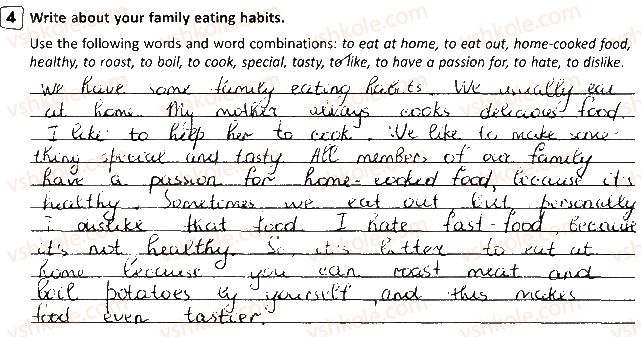 4 Write about your family eating habits.
Use the following words and word combinations: to eat at home, to eat out, home-cooked food,
healthy, to roast, to boil, to cook, special, tasty, to like, to have a passion for, to hate, to dislike.
We have some family eating habits. We usually eat
at home. My mother always cooks delicious food.
I like to help her to cook. We like to make some-
thing special and tasty. All members of our family
have a passion for home-cooked food, because it's
healthy. Sometimes we eat out, but personally
I dislike that food. I hate fast-food, because
it's not healthy. So, it's better to eat at
home, because you can roast meat and
boil potatoes by yourself, and this makes
food even tastier.
vshkole.com